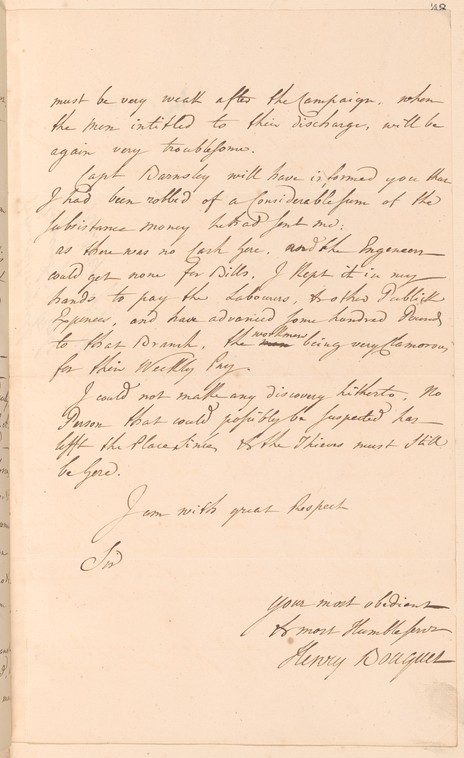 48
must be very weak after the Campaign, when
the Men intitled to their discharge, will be
again very troublesome.
Capt Barnsley will have informed you that
I had been robbed of a Considerable sum of the
subsistance money he had sent me:
as there was no Cash here, and the Engeneers
could get none for Bills, I kept it in my
hands to pay the Labourers, & other Publick
Expences, and have advanced some hundred Pounds
to that Branch, the workmen being very Clamorous
for their Weekly Pay
I could not make any discovery hitherto, No
Person that could possibly be suspected has
lefft the Place since, & the Thieves must Still
be here.
I am with great Respect
Sir
your most obedient
& most Humble Servt
Henry Bouquet